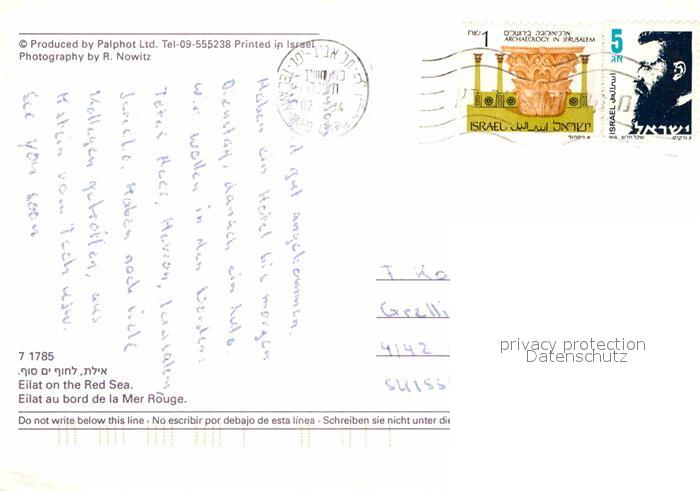 © Produced by Palphot Ltd. Tel-09-555238 Printed in Israel
Photography by R. Nowitz
1 ארכיאולוגיה בירושלים
ARCHAEOLOGY IN JERUSALEM
ISRAEL اسرائيل ישראל
5
ISRAEL اسرائيل
ישראל
gut angekommen.
Haben ein Hotel bis morgen
Dienstag, danach ein Auto.
Wir wollen in den Norden:
Totes Meer, Hevron, Jerusalem,
Jericho. Haben noch viele
Kollegen getroffen, aus
vom Tech usw.
See you soon
4142
SUISS
privacy protection
Datenschutz
7 1785
אילת, לחוף ים סוף.
Eilat on the Red Sea.
Eilat au bord de la Mer Rouge.
Do not write below this line · No escribir por debajo de esta línea · Schreiben sie nicht unter die